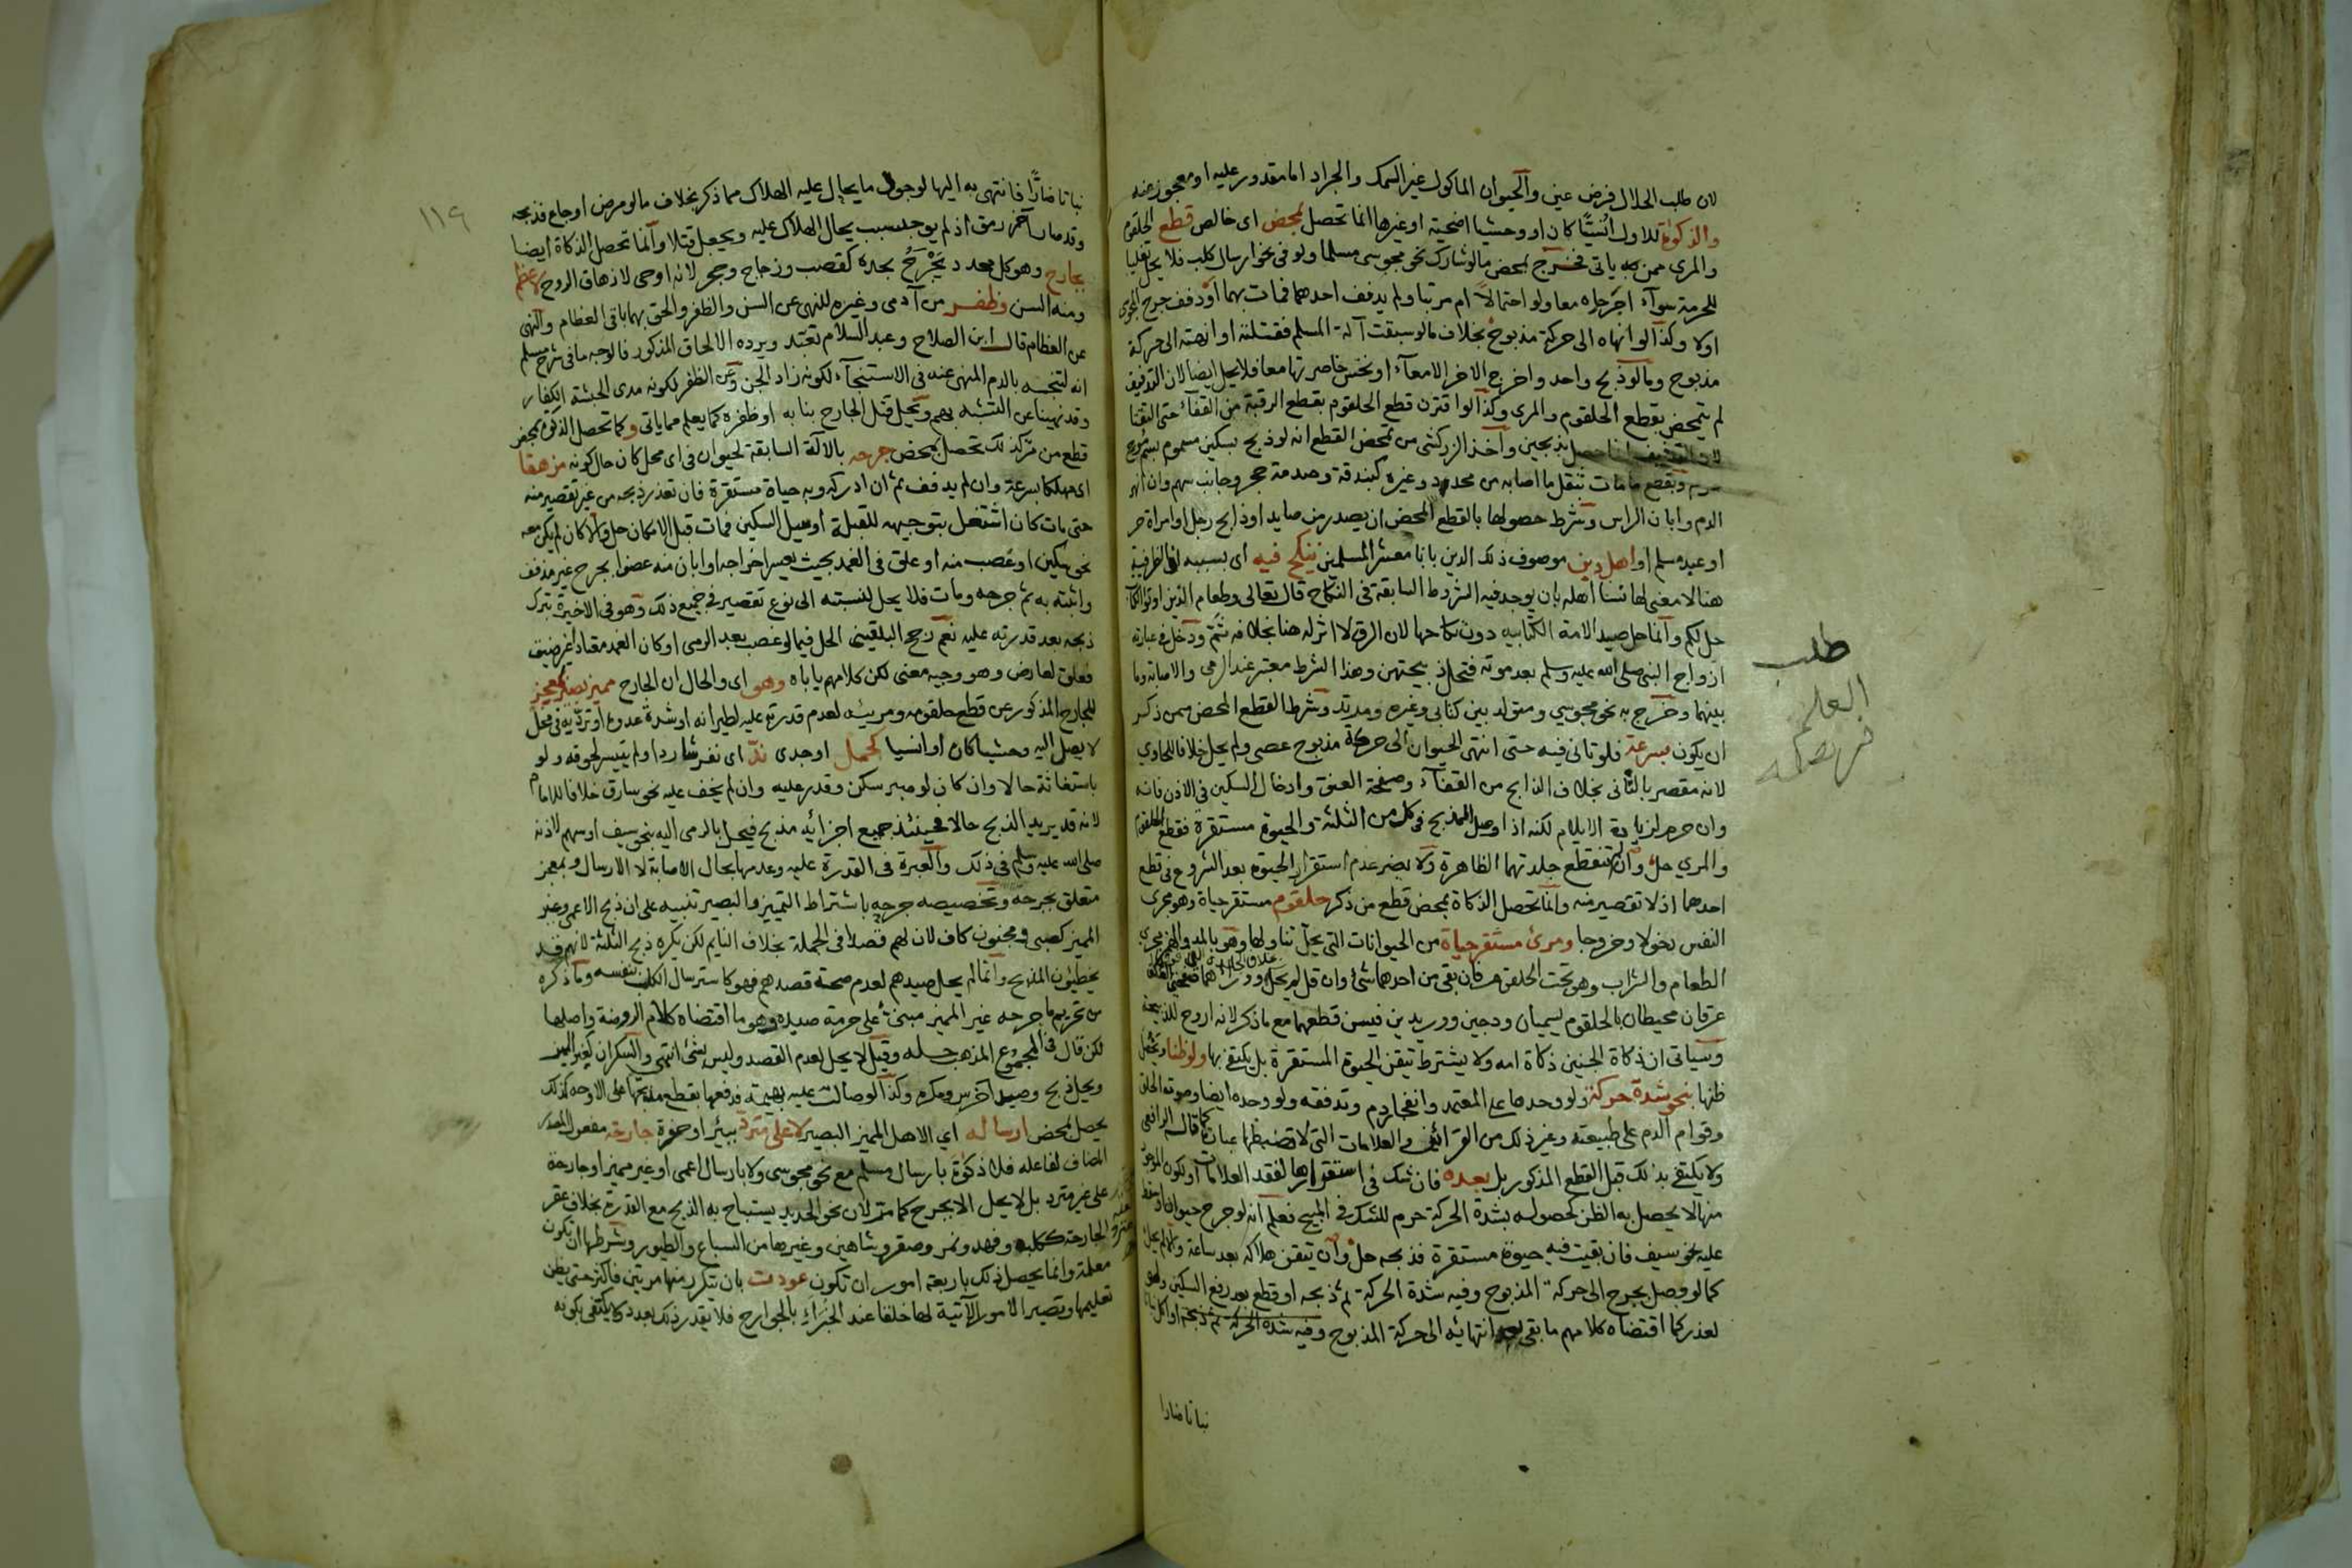 لان طلب الحلال فرض عين والحيوان الماكول غير السمك والجراد اما مقدور عليه او معجوز عنه
والذكوة للاول انسيًّا كان او وحشيا اضحية او غيرها انما تحصل بمحض اى خالص قطع الحلقوم
والمرى ممن ياتى فخرج بمحض مالو شارك نحو مجوسى مسلما ولو فى نحو ارسال كلب فلا يحل تغليبا
للحرمة سوآء اجرحاه معا ولو احتمالاً ام مرتبا ولم يدفف احدهما فمات بهما او دفف جرح المجوى
اولا وكذا لو انهاه الى حركة مذبوح بخلاف مالو سبقت آلة المسلم فقتلته او انهته الى حركة
مذبوح ومالو ذبح واحد واخرج الاخر الامعآء او نخس خاصرتها معا فلا يحل ايضا لان التدفيف
لم يتمحض بقطع الحلقوم والمرى وكذا لو اقترن قطع الحلقوم بقطع الرقبة من القفآء حتى التقتا
لان التدفيف انما حصل بذبحين واخذ الزركشى من تمحض القطع انه لو ذبح بسكين مسموم بسم موح
وبقطع ما مات بثقل ما اصابه من محدد وغيره كبندقة وصدمة حجر وجانب سهم وان انهر
الدم وابان الراس وشرط حصولها بالقطع المحض ان يصدر من صايد او ذابح رجل او امراة حر
او عبد مسلم او اهل دين موصوف ذلك الدين بانا معشر المسلمين ننكح فيه اى بسببه اذ الظرفية
هنا لا معنى لها نسا اهله بان يوجد فيه الشروط السابقة فى النكاح قال تعالى وطعام الذين اوتوا الكتاب
حل لكم وانما حل صيد الامة الكتابيه دون نكاحها لان الرق لا اثر له هنا بخلافه ثَمّ ودخل فى عبارته
ازواج النبى صلى الله عليه وسلم بعد موته فتحل ذبيحتهن وهذا الشرط معتبر عند الرمى والاصابة وما
بينهما وخرج به نحو مجوسي ومتولد بين كتابى وغيره ومرتد وشرط القطع المحض ممن ذكر
ان يكون بسرعة فلو تانى فيه حتى انتهى الحيوان الى حركة مذبوح عصى ولم يحل خلافا للحاوي
لانه مقصر بالتانى بخلاف الذابح من القفآء وصفحة العنق وادخال السكين فى الاذن فانه
وان حرم لزيادة الايلام لكنه اذا وصل المذبح فى كل من الثلثة والحيوة مستقرة فقطع الحلقوم
والمري حل وان لم تنقطع جلدتهما الظاهرة ولا يضر عدم استقرار الحيوة بعد الشروع فى قطع
احدهما اذ لا تقصير منه وانما تحصل الذكاة بمحض قطع من ذكر حلقوم مستقر حياة وهو مجرى
النفس دخولا وخروجا ومرئ مستقر حياة من الحيوانات التي يحل تناولها وهو بالمد والهمز مجرى
الطعام والشراب وهو تحت الحلقوم فان بقى من احدهما شئ وان قل لم يحل
عرقان محيطان بالحلقوم يسميان ودجين ووريدين فيسن قطعهما مع ما ذكر لانه اروح للذبيحة
وسياتى ان ذكاة الجنين ذكاة امه ولا يشترط تيقن الحيوة المستقرة بل يكتفى بها ولو ظنا ويحصل
ظنها بنحو شدة حركة ولو وحدها على المعتمد وانفجار دم وتدفقه ولو وحده ايضا وصوت الحلق
وقوام الدم على طبيعته وغير ذلك من القرائن والعلامات التى لا تضبطها عبارة كما قال الرافعى
ولا يكتفى بذلك قبل القطع المذكور بل بعده فان شك فى استقرارها لفقد العلامات او لكون الموجود
منها لا يحصل به الظن كحصوله بشدة الحركة حرم للشك فى المبيح نعلم انه لو جرح حيوان او سقط
عليه نحو سيف فان بقيت فيه حيوة مستقرة فذبحه حل وان تيقن هلاكه بعد ساعة والا لم يحل
كما لو وصل بجرح الى حركة المذبوح وفيه شدة الحركة ثم ذبحه او قطع بعد رفع السكين ولو
لعذر كما اقتضاه كلامهم ما بقى بعد انتهائه الى حركة المذبوح وفيه شدة الحركة ثم ذبحه او اكل
نباتا ضارا
طلب
العلم
فريضه
١١٩
نباتا ضارًّا فانتهى به اليها لوجود ما يحال عليه الهلاك مما ذكر بخلاف مالو مرض او جاع فذبحه
وقد صار آخر رمق اذ لم يوجد سبب يحال الهلاك عليه ويجعل قتلا وانما تحصل الذكاة ايضا
بجارح وهو كل محدد يَجْرَحُ بحده كقصب وزجاج وحجر لانه اوحى لازهاق الروح لا عظم
ومنه السن وظفر من آدمى وغيره للنهى عن السن والظفر والحق بهما باقى العظام والنهى
عن العظام قال ابن الصلاح وعبد السلام تعبد ويرده الالحاق المذكور فالوجه ما فى شرح مسلم
انه لتنجسه بالدم المنهى عنه فى الاستنجآء لكونه زاد الجن وعن الظفر لكونه مدى الحبشة الكفار
وقد نهينا عن التشبه بهم وتحل قتل الجارح بنابه او ظفره كما يعلم مما ياتى وكما تحصل الذكوة بمحض
قطع من مَرّ كذلك تحصل بمحض جرحه بالالة السابقة لحيوان فى اى محل كان حال كونه مزهقا
اى مهلكا بسرعة وان لم يدفف ثم ان ادركه وبه حياة مستقرة فان تعذر ذبحه من غير تقصير منه
حتى مات كان اشتغل بتوجيهه للقبلة او سل السكين فمات قبل الامكان حل والا كان لم يكن معه
نحو سكين او غصب منه او علق فى الغمد بحيث يعسر اخراجه او ابان منه عضوا بجرح غير مذفف
واثبته به ثم جرحه ومات فلا يحل لنسبته الى نوع تقصير فى جميع ذلك وهو فى الاخيرة بترك
ذبحه بعد قدرته عليه نعم رجح البلقينى الحل فيما لو غصب بعد الرمى او كان الغمد معتادا غير ضيق
فعلق لعارض وهو وجيه معنى لكن كلامهم ياباه وهو اى والحال ان الجارح مميز بصير لمعجز
للجارح المذكور عن قطع حلقومه ومريئه لعدم قدرته عليه لطيرانه او شدة عدوه او تردّيه فى محل
لا يصل اليه وحشيا كان او انسيا كجمل او جدى ندّ اى نفر شاردا ولم يتيسر لحوقه ولو
باستغاثة حالا وان كان لو صبر سكن وقدر عليه وان لم يخف عليه نحو سارق خلافا للامام
لانه قد يريد الذبح حالا فحينئذ جميع اجزائه مذبح فيحل بالرمى اليه بنحو سيف او سهم لاذنه
صلى الله عليه وسلم فى ذلك والعبرة فى القدرة عليه وعدمها بحال الاصابة لا الارسال وبمعجز
متعلق بجرحه وتخصيصه جرحه باشتراط التمييز والبصير تنبيه على ان ذبح الاعمى وغير
المميز كصبى ومجنون كاف لان لهم قصدا فى الجملة بخلاف النايم لكن يكره ذبح الثلثة لانهم قد
يخطئون المذبح وانما لم يحل صيدهم لعدم صحة قصدهم فهو كاسترسال الكلب بنفسه وما ذكره
من تحريم ما جرحه غير المميز مبنىّ على حرمة صيده وهو ما اقتضاه كلام الروضة واصلها
لكن قال فى المجموع المذهب حله وقيل لا يحل لعدم القصد وليس بشئ انتهى والسكران كغير المميز
ويحل ذبح وصيد اخرس ومكره وكذا لو صالت عليه بهيمة فدفعها بقطع مذبحها على الاوجه كذلك
يحصل بمحض ارساله اي الاهل المميز البصير لا على مترد ببئر او حفرة جارحة مفعول المصدر
المضاف لفاعله فلا ذكوة بارسال مسلم مع نحو مجوسى ولا بارسال اعمى او غير مميز او جارحة
على غير مترد بل لا يحل الا بجرح كما مَرّ لان نحو الحديد يستباح به الذبح مع القدرة بخلاف عقر
الجارحة ككلب وفهد ونمر وصقر وشاهين وغيرها من السباع والطيور وشرطها ان تكون
معلمة وانما يحصل ذلك باربعة امور ان تكون عودت بان يتكرر منها مرتين فاكثر حتى يظن
تعليمها وتصير الامور الآتية لها خلقا عند الخبرآءِ بالجوارح فلا يقدر ذلك بعدد كما يكتفى بكونه